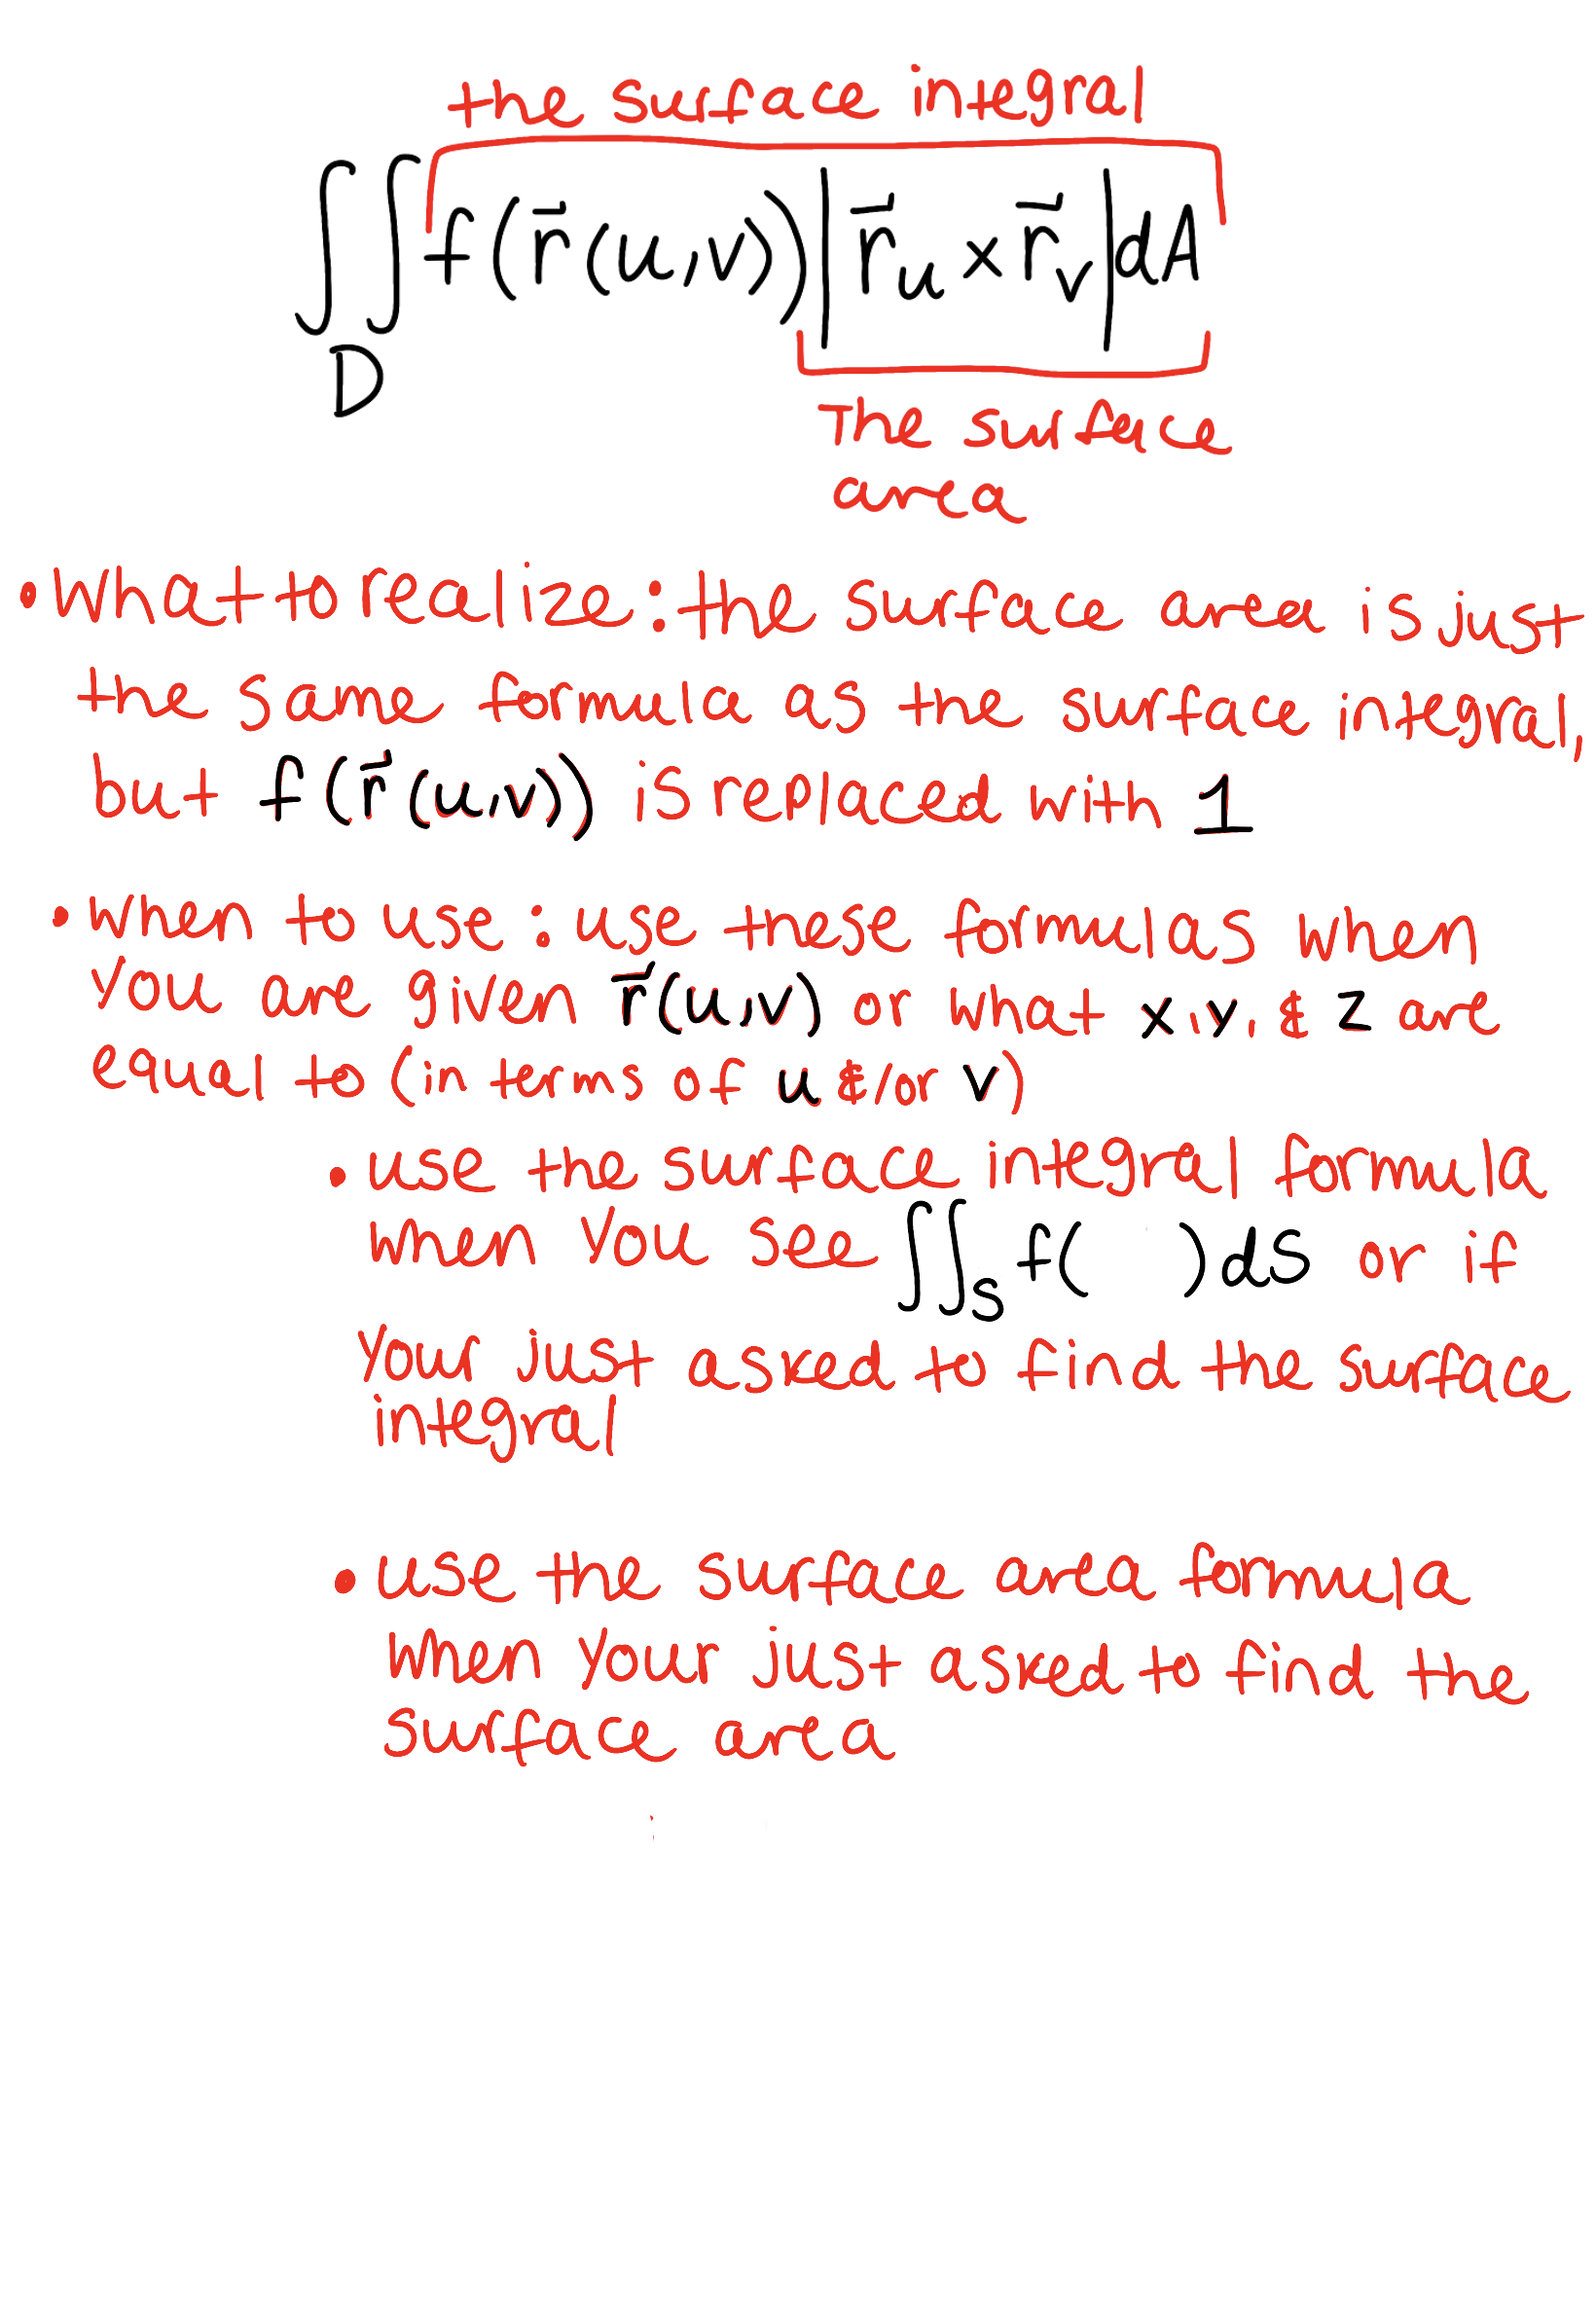 the surface integral
∬_D f(r⃗(u,v))|r⃗_u × r⃗_v|dA
The surface
area
• What to realize: the surface area is just
the same formula as the surface integral,
but f(r⃗(u,v)) is replaced with 1
• when to use: use these formulas when
you are given r⃗(u,v) or what x,y, & z are
equal to (in terms of u &/or v)
• use the surface integral formula
when you see ∬_S f( )dS or if
your just asked to find the surface
integral
• use the surface area formula
when your just asked to find the
surface area